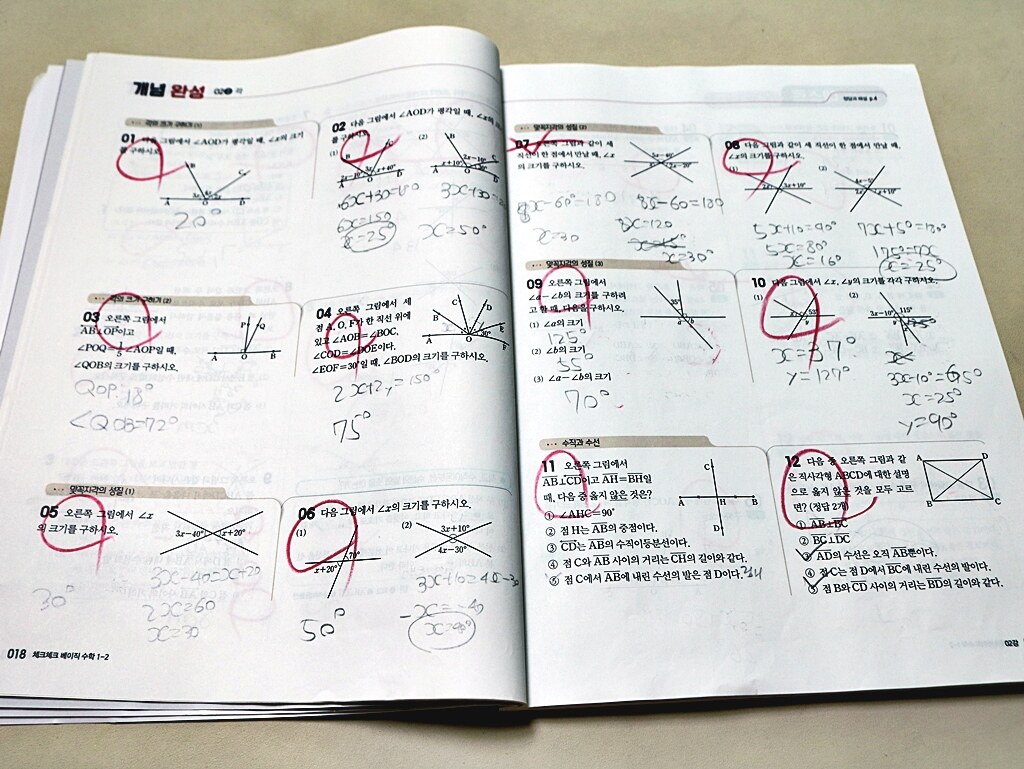 개념 완성 02 각
각의 크기 구하기 (1)
01 다음 그림에서 ∠AOD가 평각일 때, ∠x의 크기
를 구하시오.
A O D
C
20°
02 다음 그림에서 ∠AOD가 평각일 때, ∠x의
를 구하시오.
(1) (2)
6x+30=180
6x=150
x=25°
3x+30
x=50°
각의 크기 구하기 (2)
03 오른쪽 그림에서
AB⊥OP이고
∠POQ=1/5∠AOP일 때,
∠QOB의 크기를 구하시오.
P Q
A O B
QOP:18°
∠QOB=72°
04 오른쪽 그림에서 세
점 A, O, F가 한 직선 위에
있고 ∠AOB=∠BOC,
∠COD=∠DOE이다.
∠EOF=30°일 때, ∠BOD의 크기를 구하시오.
2x+2y=150°
75°
맞꼭지각의 성질 (1)
05 오른쪽 그림에서 ∠x
의 크기를 구하시오.
3x-40° x+20°
3x-40=x+20
2x=60
x=30
30°
06 다음 그림에서 ∠x의 크기를 구하시오.
(1) (2)
70°
x+20°
3x+10°
4x-30°
50°
3x+10=4x-30
-x=-40
x=40°
018 체크체크 베이직 수학 1-2
맞꼭지각의 성질 (2)
07 오른쪽 그림과 같이 세
직선이 한 점에서 만날 때, ∠x
의 크기를 구하시오.
8x-60=180
x=30
8x-60=180
x=30°
08 다음 그림과 같이 세 직선이 한 점에서 만날 때,
∠x의 크기를 구하시오.
(1) (2)
2x 3x+10°
5x+10=90°
5x=80°
x=16°
7x+5°=180°
175=7x
x=25°
맞꼭지각의 성질 (3)
09 오른쪽 그림에서
∠a-∠b의 크기를 구하려
고 한다. 다음을 구하시오.
(1) ∠a의 크기
125°
(2) ∠b의 크기
55°
(3) ∠a-∠b의 크기
70°
10 다음 그림에서 ∠x, ∠y의 크기를 각각 구하시오.
(1) (2)
53°
3x-10° 115°
y=127°
x=25°
y=90°
수직과 수선
11 오른쪽 그림에서
AB⊥CD이고 AH=BH일
때, 다음 중 옳지 않은 것은?
① ∠AHC=90°
② 점 H는 AB의 중점이다.
③ CD는 AB의 수직이등분선이다.
④ 점 C와 AB 사이의 거리는 CH의 길이와 같다.
⑤ 점 C에서 AB에 내린 수선의 발은 점 D이다.
C
A H B
D
12 다음 중 오른쪽 그림과 같
은 직사각형 ABCD에 대한 설명
으로 옳지 않은 것을 모두 고르
면? (정답 2개)
① AB⊥BC
② BC⊥DC
③ AD의 수선은 오직 AB뿐이다.
④ 점 C는 점 D에서 BC에 내린 수선의 발이다.
⑤ 점 B와 CD 사이의 거리는 BD의 길이와 같다.
A D
B C